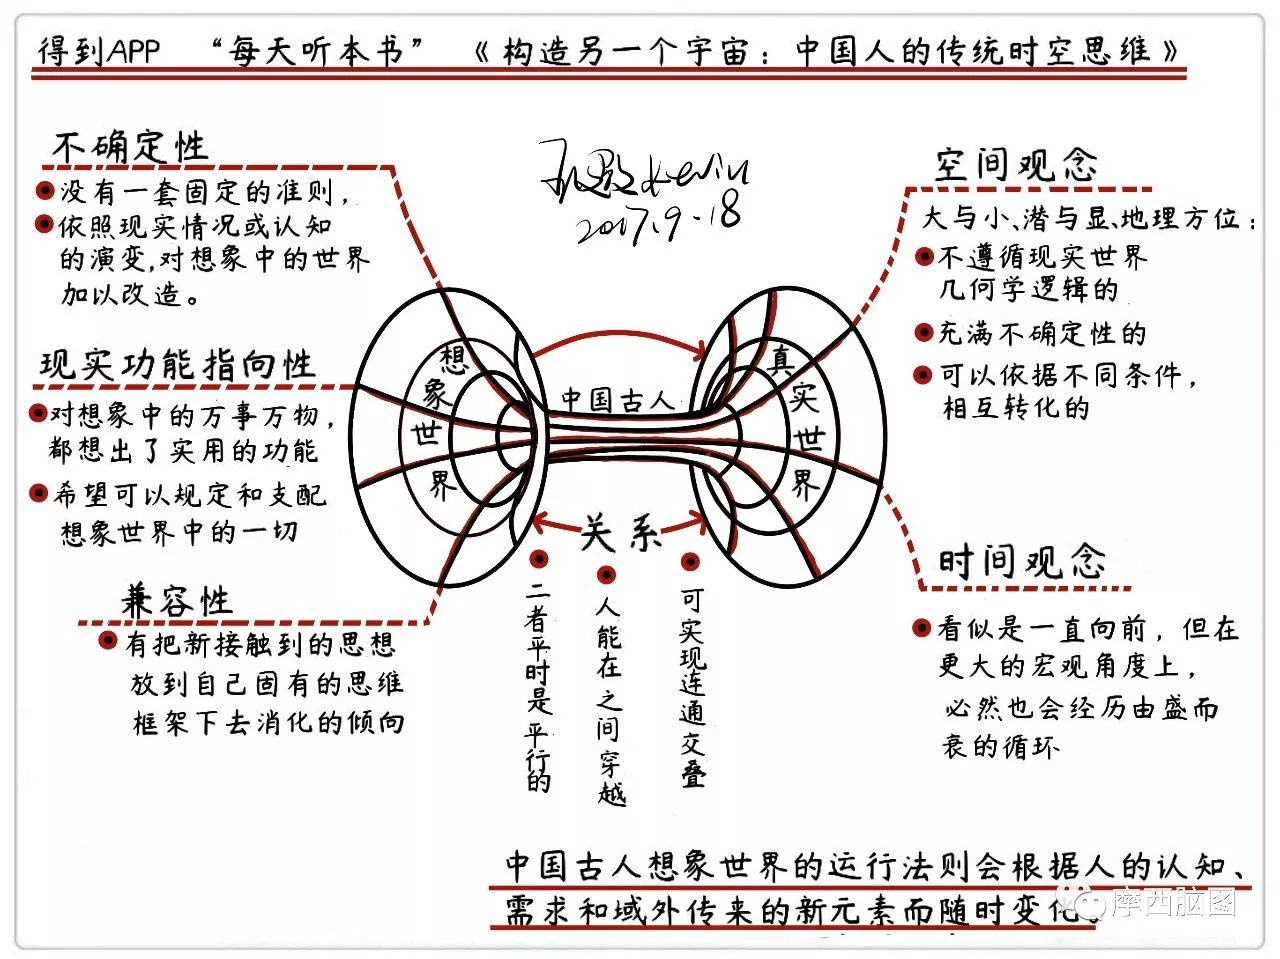 得到APP “每天听本书” 《构造另一个宇宙：中国人的传统时空思维》
不确定性
没有一套固定的准则，
依照现实情况或认知
的演变,对想象中的世界
加以改造。
现实功能指向性
对想象中的万事万物，
都想出了实用的功能
希望可以规定和支配
想象世界中的一切
兼容性
有把新接触到的思想
放到自己固有的思维
框架下去消化的倾向
Kevin
2017.9.18
想象世界
中国古人
真实世界
关系
二者平时是平行的
人能在之间穿越
可实现连通交叠
空间观念
大与小、潜与显、地理方位：
不遵循现实世界
几何学逻辑的
充满不确定性的
可以依据不同条件，
相互转化的
时间观念
看似是一直向前，但在
更大的宏观角度上，
必然也会经历由盛而
衰的循环
中国古人想象世界的运行法则会根据人的认知、
需求和域外传来的新元素而随时变化。
摩西脑图